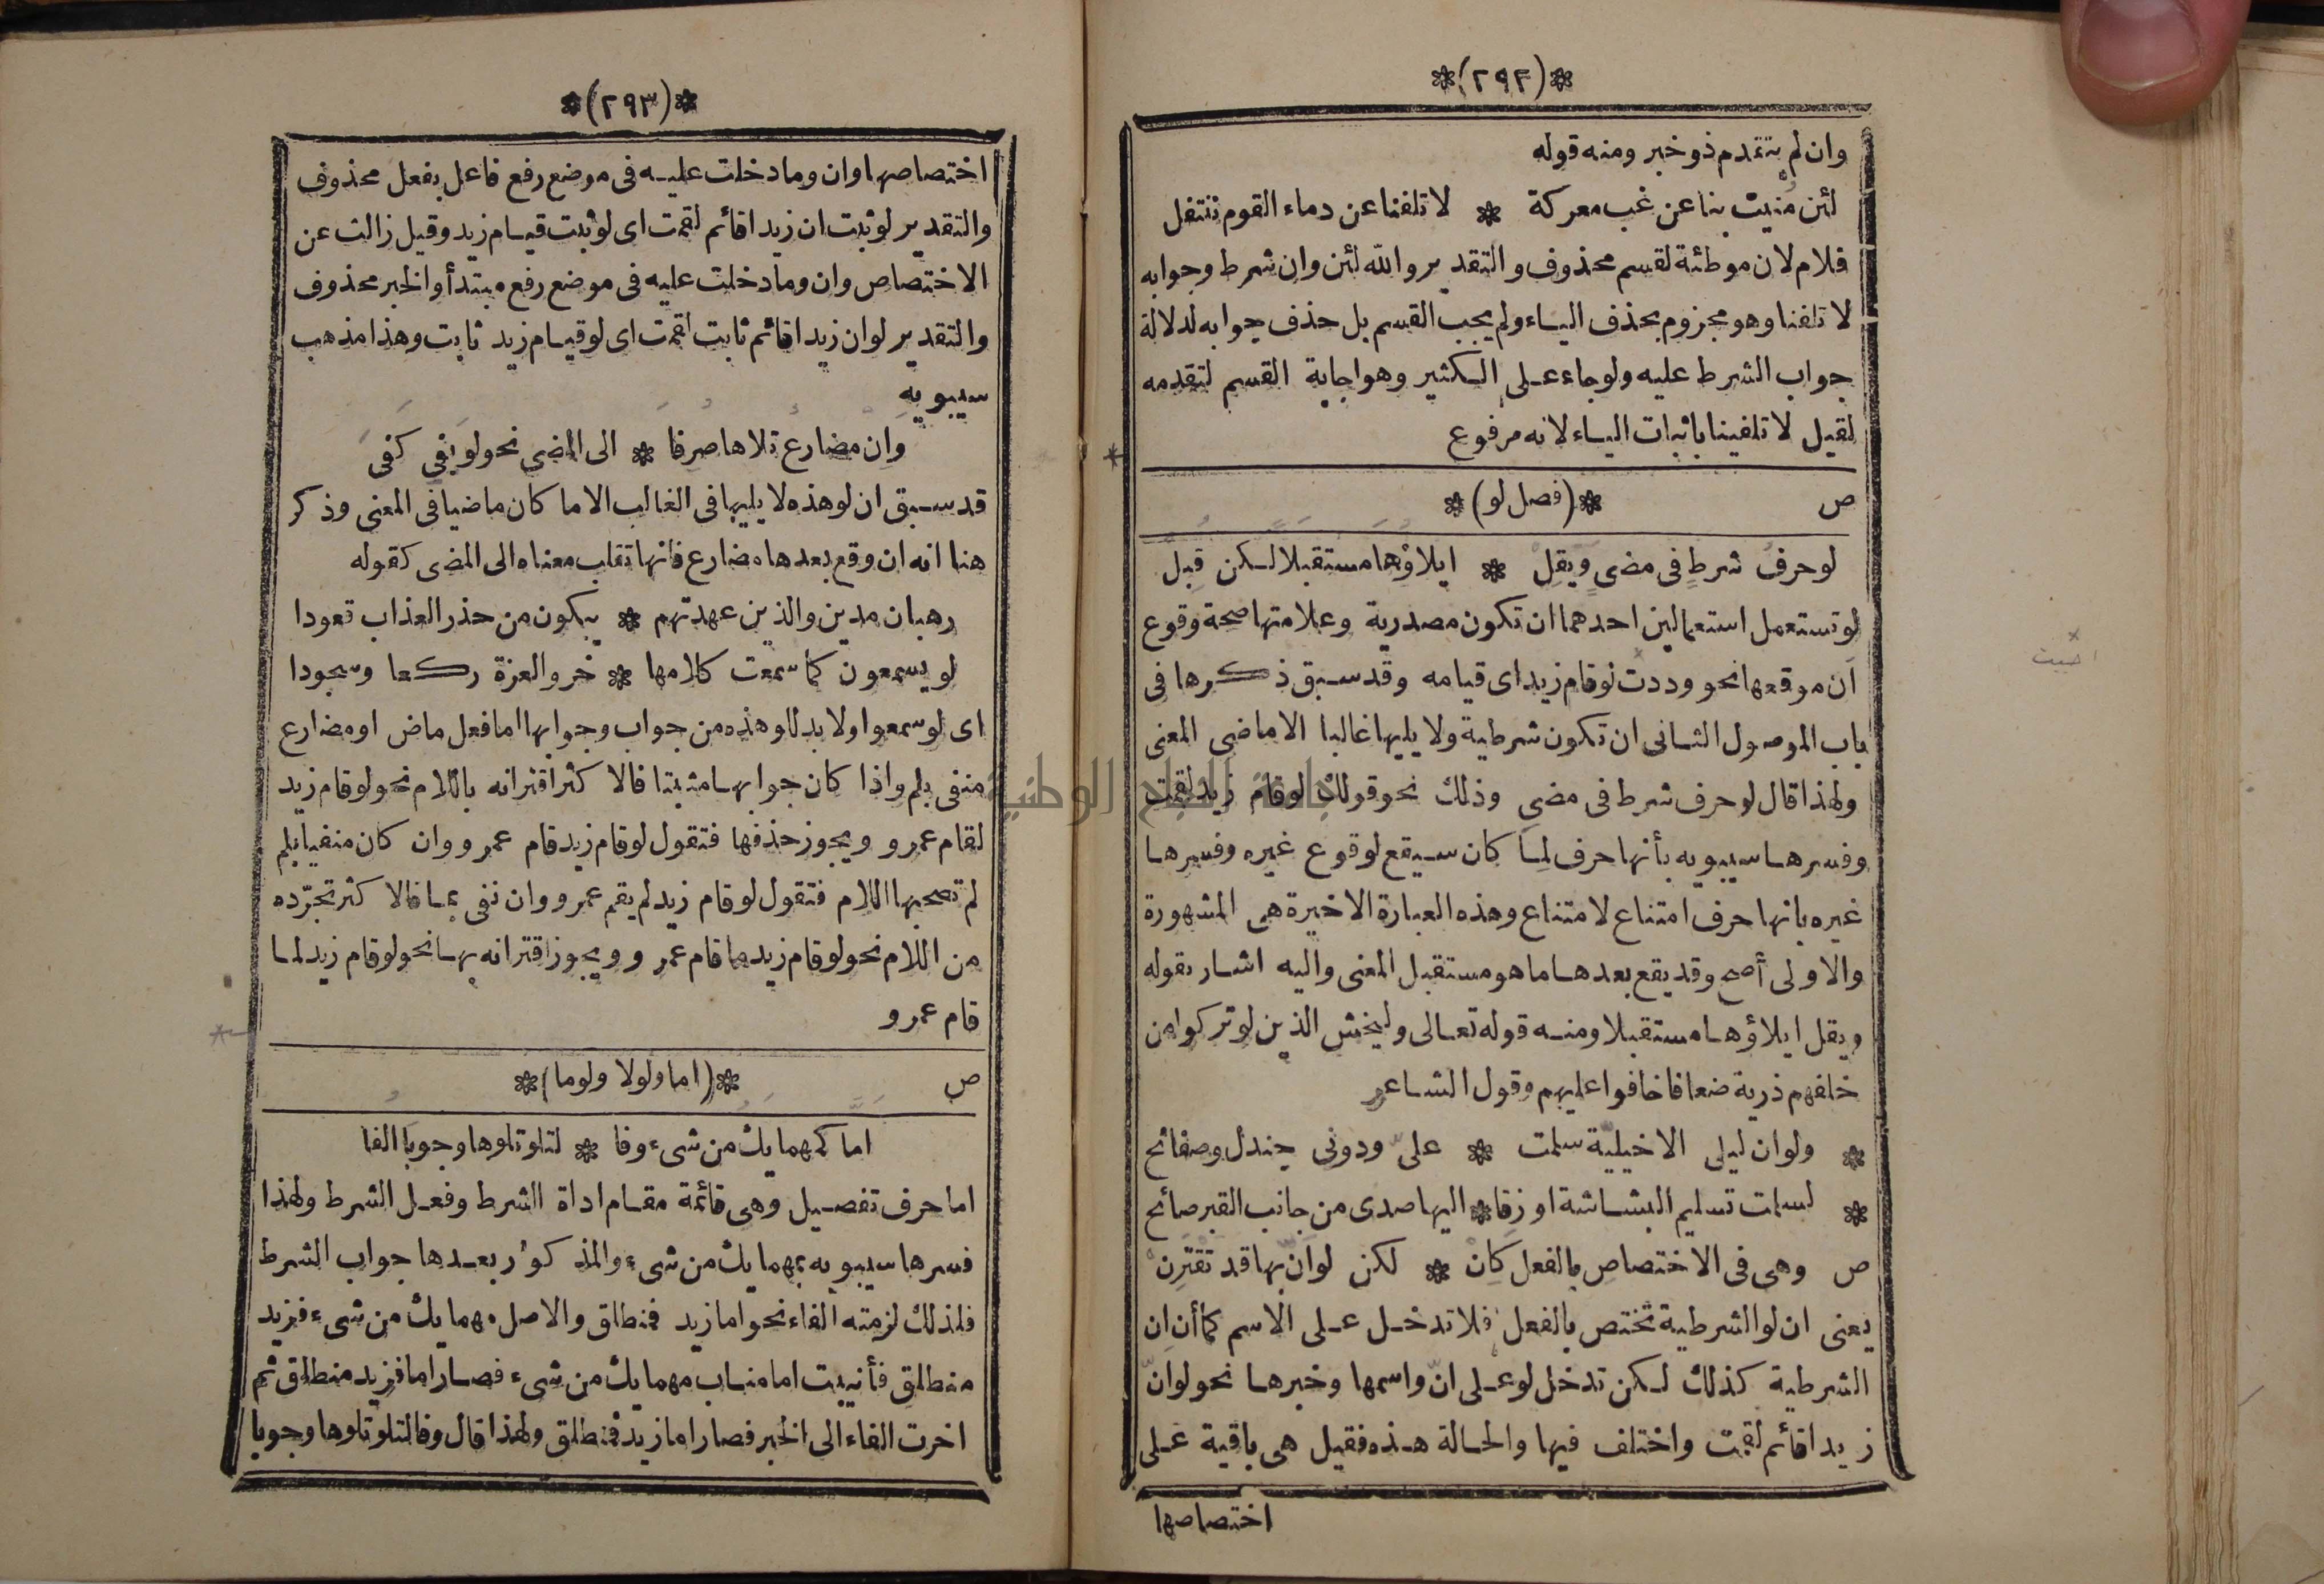 *(٢٩٢)*
وان لم يتقدم ذو خبر ومنه قوله
لئن مُنيت بنا عن غب معركة * لا تلفنا عن دماء القوم ننتفل
فلام لان موطئة لقسم محذوف والتقدير والله لئن وان شرط وجوابه
لا تلفنا وهو مجزوم بحذف الياء ولم يجب القسم بل حذف جوابه لدلالة
جواب الشرط عليه ولو جاء على الكثير وهو اجابة القسم لتقدمه
لقيل لا تلفينا باثبات الياء لانه مرفوع
ص *(فصل لو)*
لو حرفُ شرطٍ فى مضىٍ ويقِلْ * ايلاؤها مستقبلا لكن قُبِلْ
لو تستعمل استعمالين احدهما ان تكون مصدرية وعلامتها صحة وقوع
أن موقعها نحو وددت لو قام زيد اى قيامه وقد سبق ذكرها فى
باب الموصول الثانى ان تكون شرطية ولا يليها غالبا الا ماضى المعنى
ولهذا قال لو حرف شرط فى مضى وذلك نحو قولك لو قام زيد لقمت
وفسرها سيبويه بأنها حرف لما كان سيقع لوقوع غيره وفسرها
غيره بانها حرف امتناع لامتناع وهذه العبارة الاخيرة هى المشهورة
والاولى أصح وقد يقع بعدها ما هو مستقبل المعنى واليه اشار بقوله
ويقل ايلاؤها مستقبلا ومنه قوله تعالى وليخش الذين لو تركوا من
خلفهم ذرية ضعافا خافوا عليهم وقول الشاعر
* ولو ان ليلى الاخيليّة سلمت * علىّ ودونى جندل وصفائح
* لسلمت تسليم البشاشة او زقا * اليها صدى من جانب القبر صائح
ص وهى فى الاختصاص بالفعل كَانْ * لكن لو انّ بها قد تقترن
يعنى ان لو الشرطية تختص بالفعل فلا تدخل على الاسم كما أن ان
الشرطية كذلك لكن تدخل لو على انّ واسمها وخبرها نحو لو انّ
زيدا قائم لقمت واختلف فيها والحالة هذه فقيل هى باقية على
اختصاصها
*(٢٩٣)*
اختصاصها وان وما دخلت عليه فى موضع رفع فاعل بفعل محذوف
والتقدير لو ثبت ان زيدا قائم لقمت اى لو ثبت قيام زيد وقيل زالت عن
الاختصاص وان وما دخلت عليه فى موضع رفع مبتدأ والخبر محذوف
والتقدير لو ان زيدا قائم ثابت لقمت اى لو قيام زيد ثابت وهذا مذهب
سيبويهِ
وان مضارع تلاها صرفا * الى المضى نحو لو يفى كفى
قد سبق ان لو هذه لا يليها فى الغالب الا ما كان ماضيا فى المعنى وذكر
هنا انه ان وقع بعدها مضارع فانها تقلب معناه الى المضى كقوله
رهبان مدين والذين عهدتهم * يبكون من حذر العذاب قعودا
لو يسمعون كما سمعت كلامها * خروا لعزة ركعا وسجودا
اى لو سمعوا ولا بد للو هذه من جواب وجوابها اما فعل ماض او مضارع
منفى بلم واذا كان جوابها مثبتا فالاكثر اقترانه باللام نحو لو قام زيد
لقام عمرو ويجوز حذفها فتقول لو قام زيد قام عمرو وان كان منفيا بلم
لم تصحبها اللام فتقول لو قام زيد لم يقم عمرو وان نفى بما فالاكثر تجرّده
من اللام نحو لو قام زيد ما قام عمرو ويجوز اقترانه بها نحو لو قام زيد لما
قام عمرو
ص *(اما ولولا ولوما)*
اما كمهما يك من شىء وفا * لتلو تلوها وجوبا الفا
اما حرف تفصيل وهى قائمة مقام اداة الشرط وفعل الشرط ولهذا
فسرها سيبويه بمهما يك من شىء والمذكور بعدها جواب الشرط
فلذلك لزمته الفاء نحو اما زيد فمنطلق والاصل مهما يك من شىء فزيد
منطلق فأنيبت اما مناب مهما يك من شىء فصار اما فزيد منطلق ثم
اخرت الفاء الى الخبر فصار اما زيد فمنطلق ولهذا قال وفا لتلو تلوها وجوبا